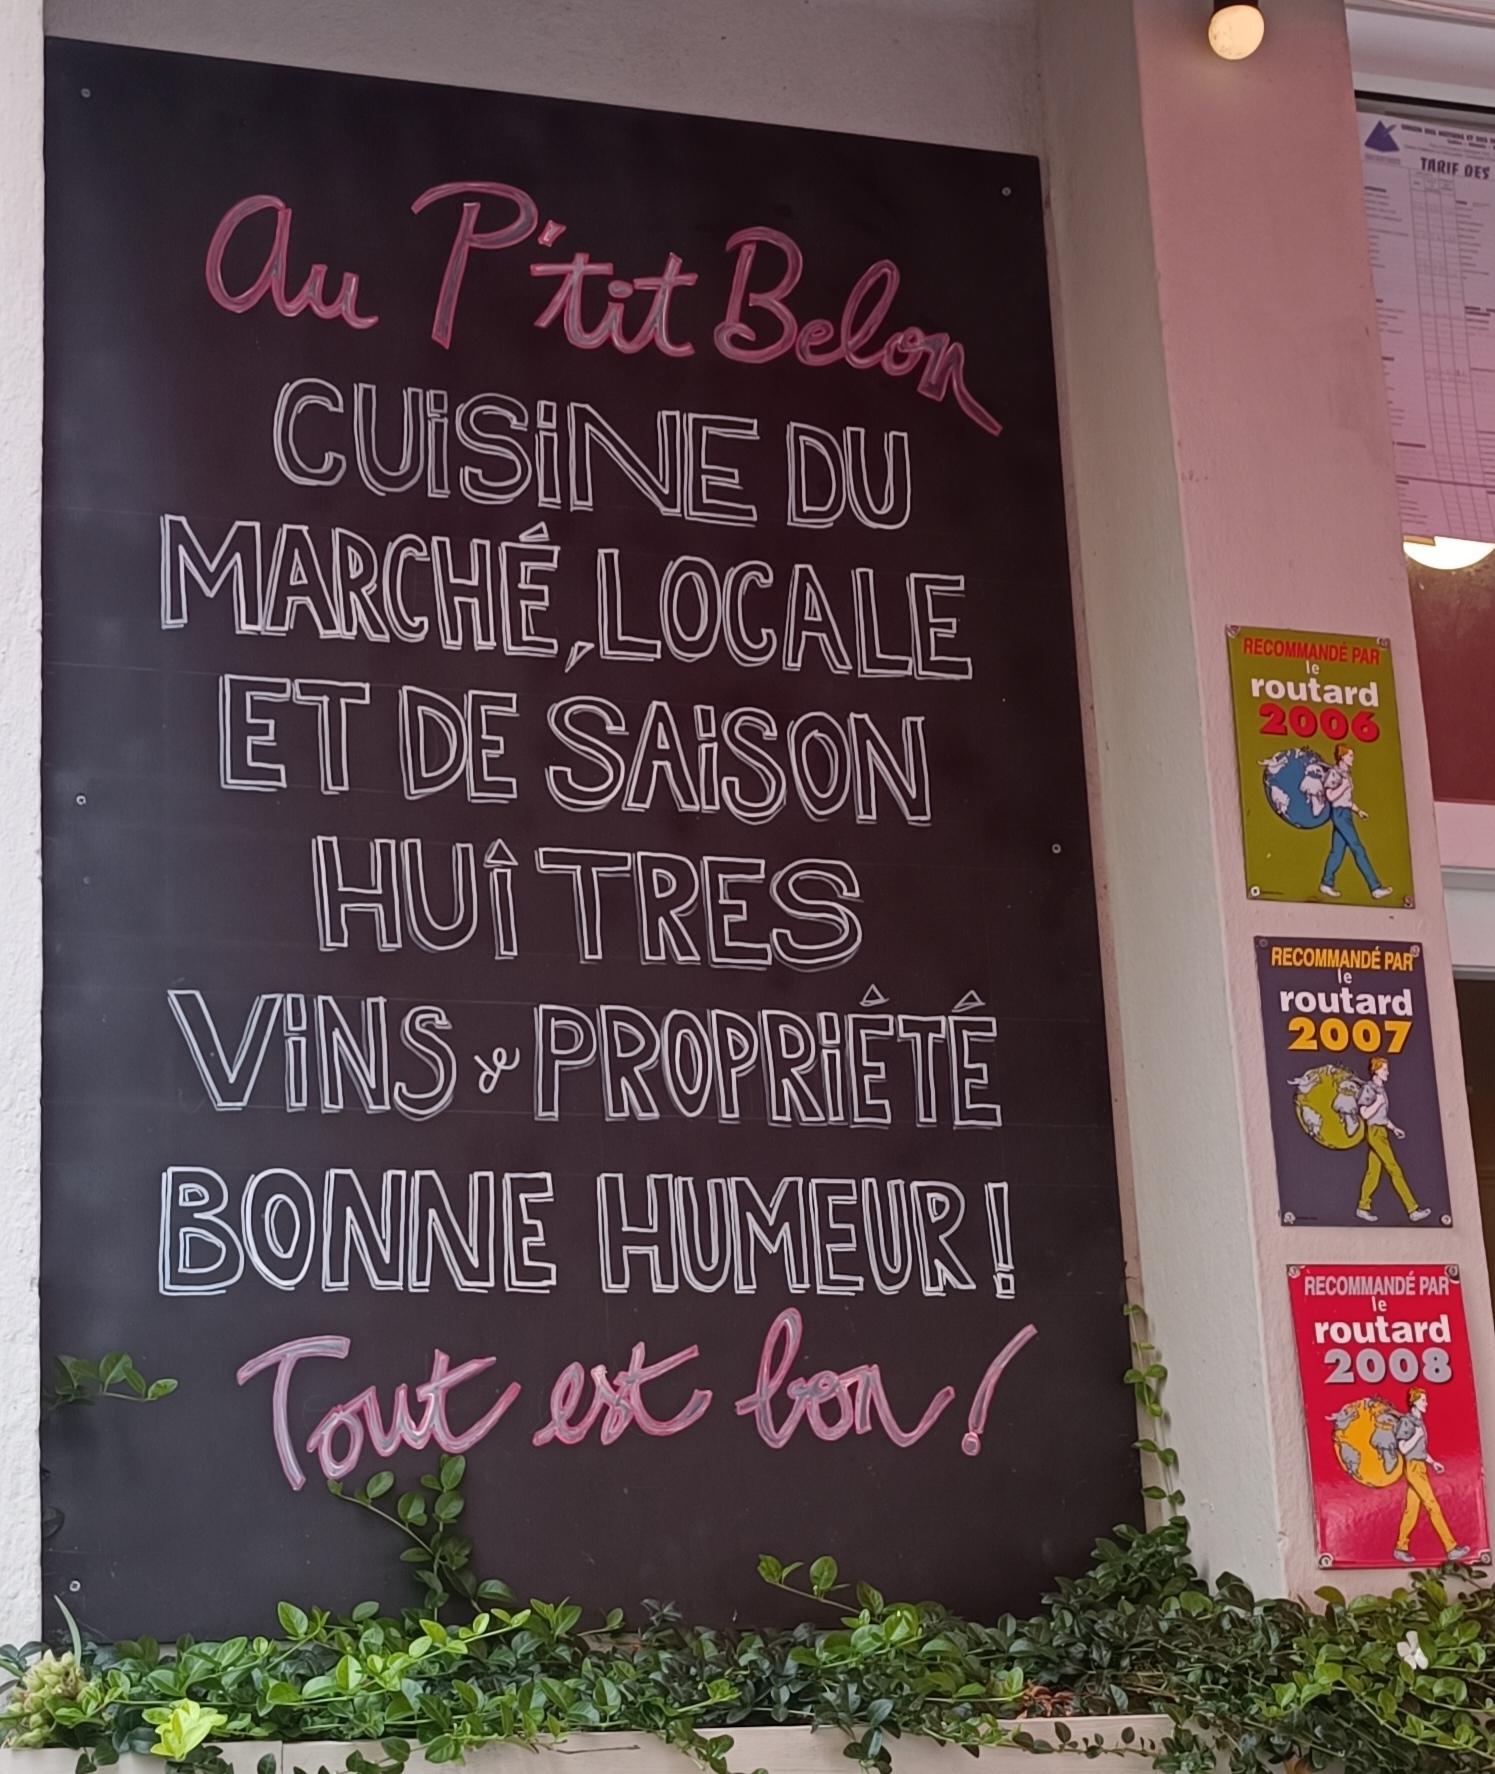 Au P'tit Belon
CUiSiNE DU
MARCHÉ, LOCALE
ET DE SAiSON
HUÎTRES
ViNS de PROPRiÉTÉ
BONNE HUMEUR!
Tout est bon!
TARIF DES
RECOMMANDÉ PAR
le
routard
2006
RECOMMANDÉ PAR
le
routard
2007
RECOMMANDÉ PAR
le
routard
2008